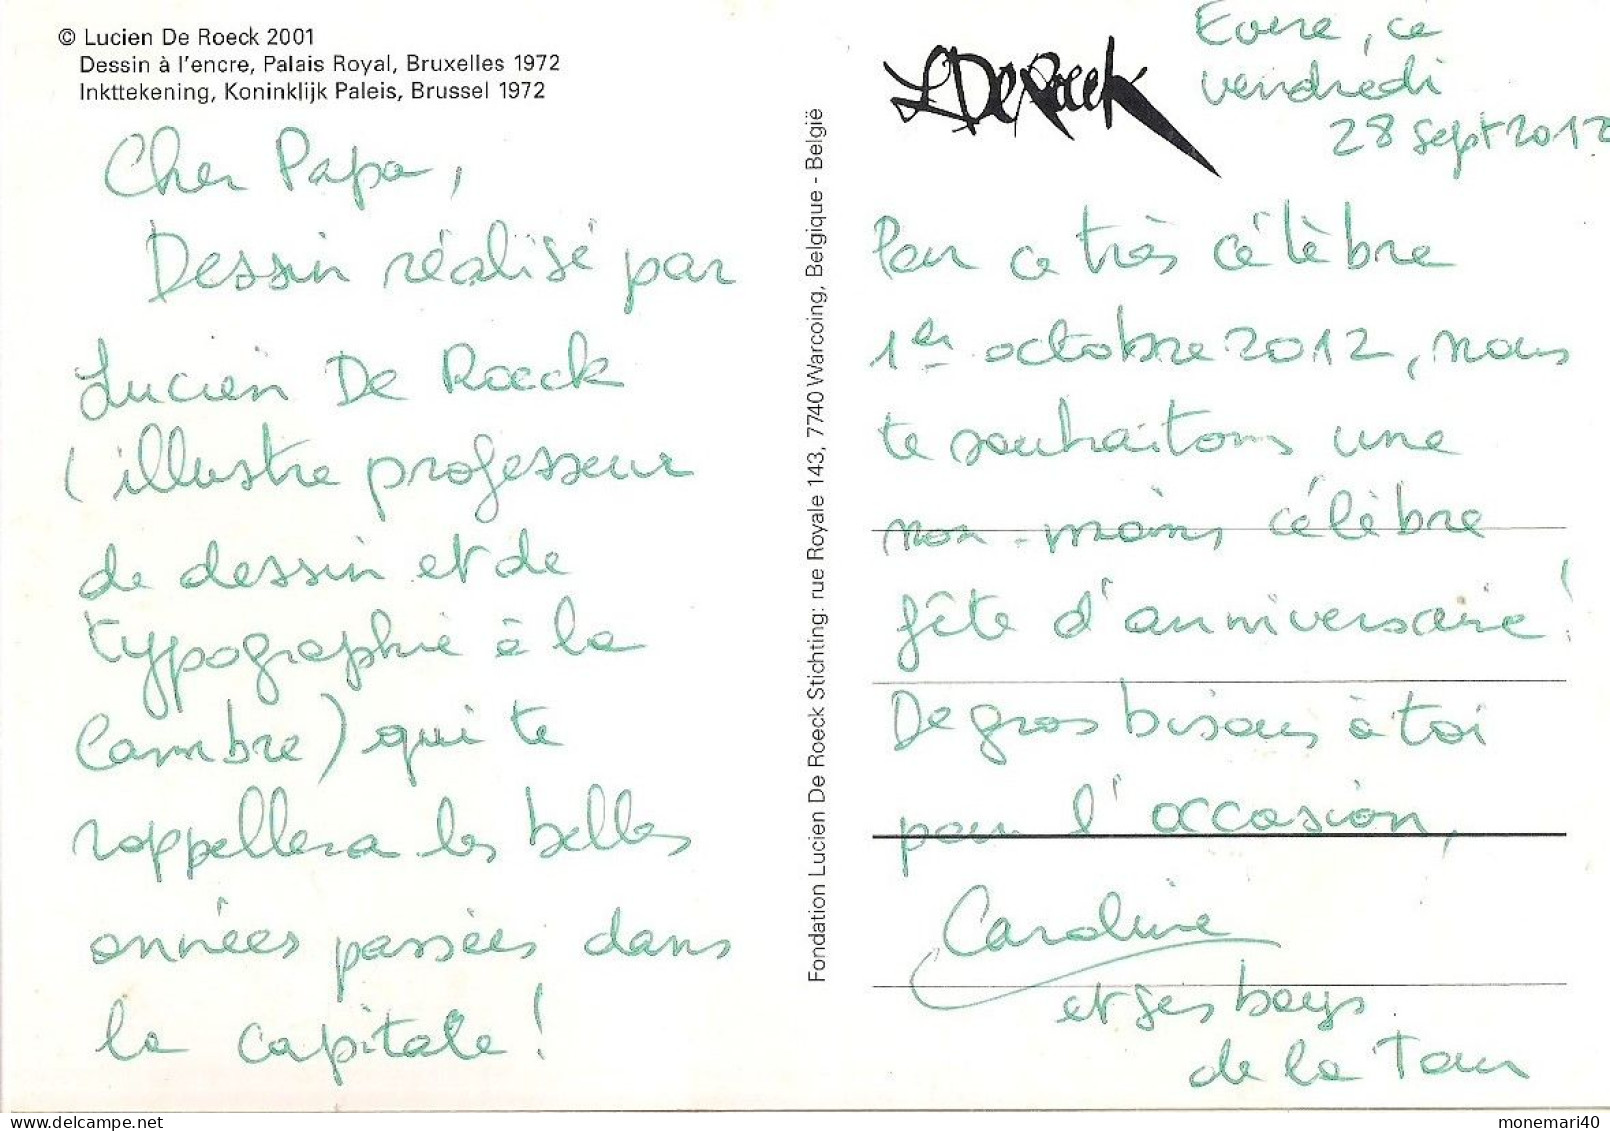 © Lucien De Roeck 2001
Dessin à l'encre, Palais Royal, Bruxelles 1972
Inkttekening, Koninklijk Paleis, Brussel 1972
Cher Papa,
Dessin réalisé par
Lucien De Roeck
(illustre professeur
de dessin et de
typographie à la
Cambre) qui te
rappellera les belles
années passées dans
la capitale !
Fondation Lucien De Roeck Stichting: rue Royale 143, 7740 Warcoing, Belgique - België
L De Roeck
Evere, ce
vendredi
28 sept 2012
Par ce très célèbre
1er octobre 2012, nous
te souhaitons une
non-moins célèbre
fête d'anniversaire !
De gros bisous à toi
pour l'occasion,
Caroline
et ses boys
de la Tour
www.delcampe.net
monemari40